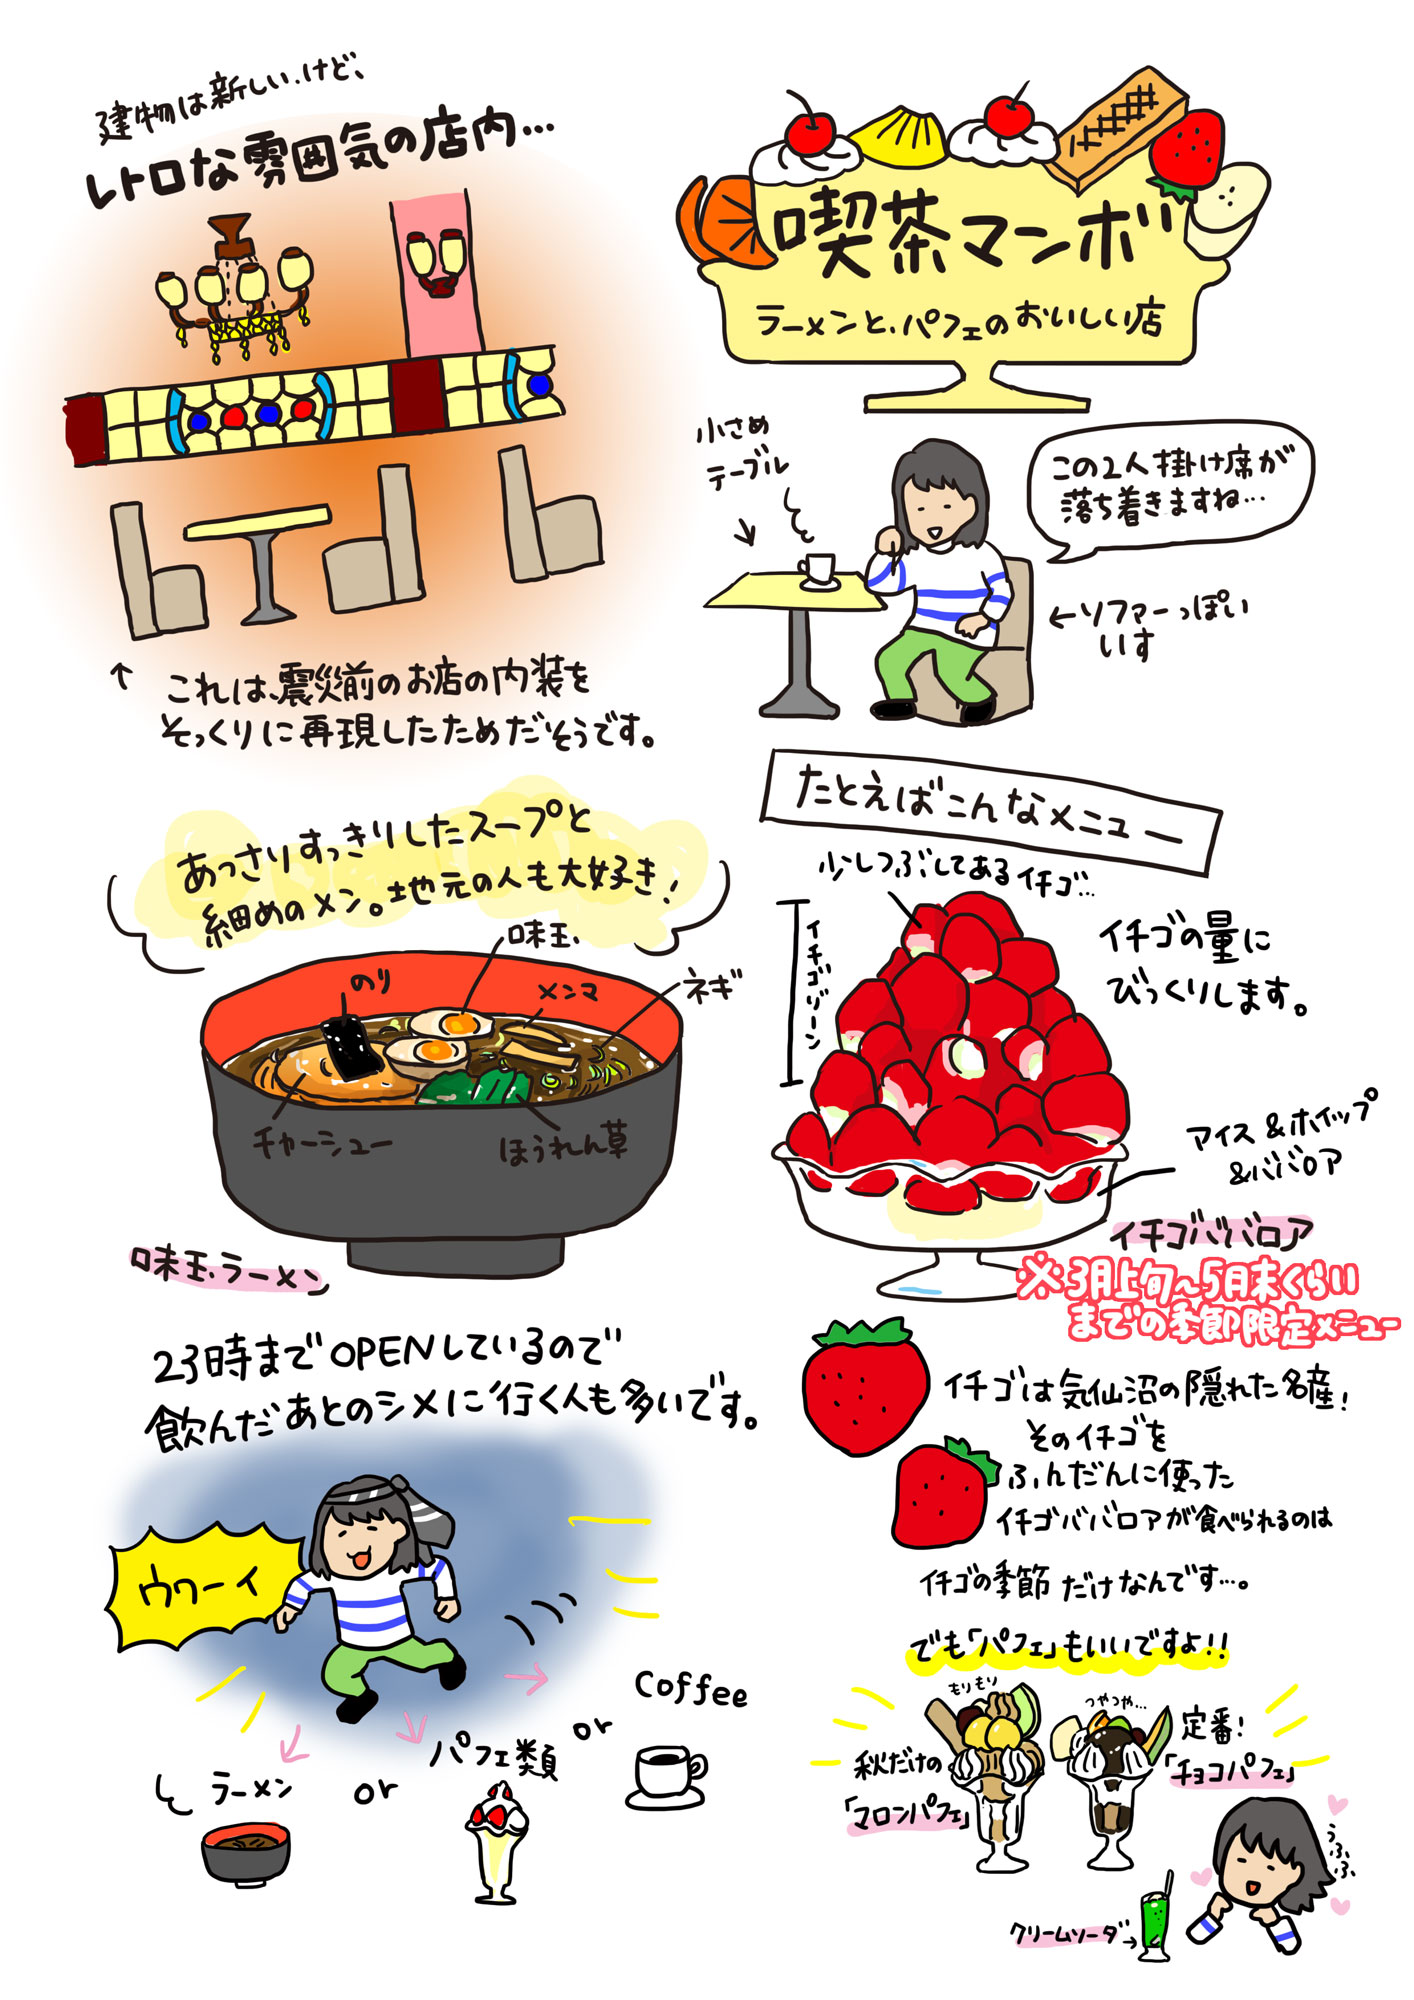 喫茶マンボ
ラーメンと、パフェのおいしい店
小さめ
テーブル
この2人掛け席が
落ち着きますね…
←ソファーっぽい
いす
建物は新しい.けど、
レトロな雰囲気の店内…
↑ これは、震災前のお店の内装を
そっくりに再現したためだそうです。
たとえばこんなメニュー
少しつぶしてあるイチゴ…
イチゴゾーン
イチゴの量に
びっくりします。
アイス&ホイップ
&ババロア
イチゴババロア
※3月上旬〜5月末くらい
までの季節限定メニュー
イチゴは気仙沼の隠れた名産!
そのイチゴを
ふんだんに使った
イチゴババロアが食べられるのは
イチゴの季節だけなんです…。
でも「パフェ」もいいですよ!!
もりもり
つやつや…
秋だけの
「マロンパフェ」
定番!
「チョコパフェ」
うふふふ
クリームソーダ→
あっさりすっきりしたスープと
細めのメン。地元の人も大好き!
味玉
のり
メンマ
ネギ
チャーシュー
ほうれん草
味玉ラーメン
23時までOPENしているので
飲んだあとのシメに行く人も多いです。
ウワーイ
ラーメン
or
パフェ類
or
Coffee